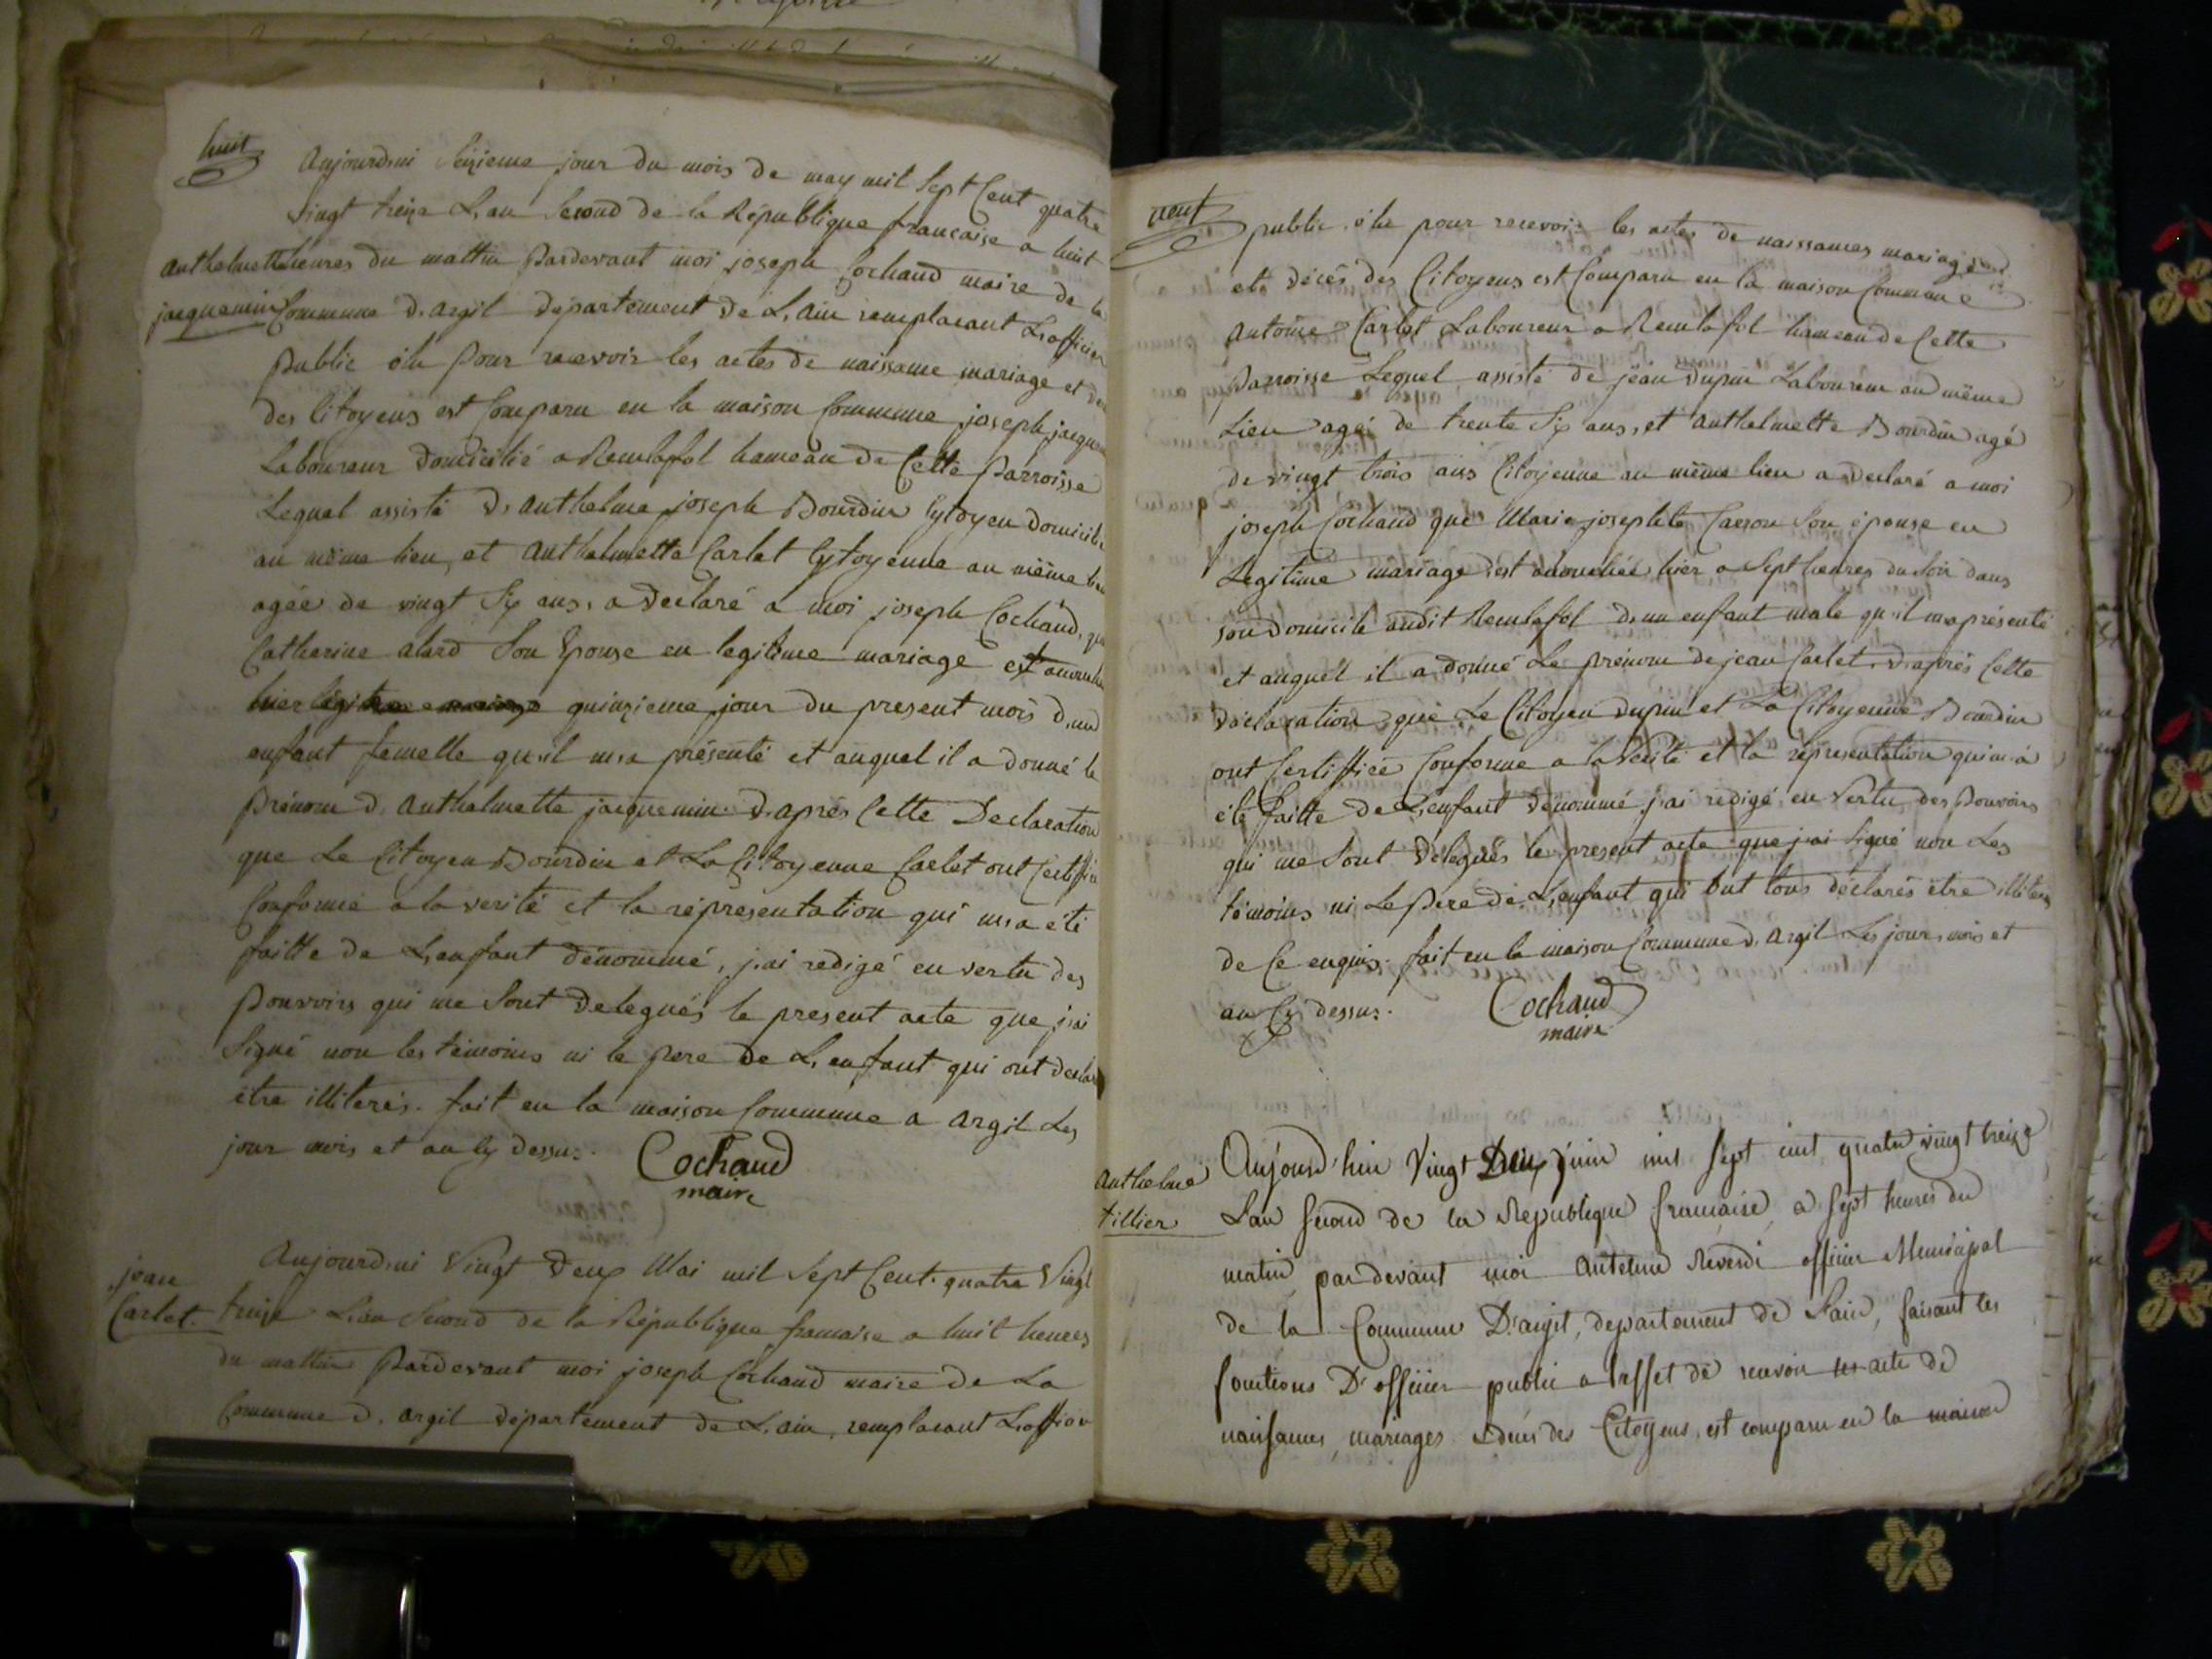 huit
Aujourdhui Seizieme jour du mois de may mil Sept Cent quatre
Vingt treize L,an Second de la République francaise a huit
Anthelmette
heures du mattin Pardevant moi joseph Cochand maire de la
jacquemin
Commune d,argil département de L,ain remplacant L,officier
Public élu Pour recevoir les actes de naissance mariage et
des Citoyens est Comparu en la maison Commune joseph
Laboureur Domicilié a Remlafol hameau de Cette Parroisse
Lequel assisté D,Anthelme joseph Bourdin Cytoyen
au même lieu, et Anthelmette Carlet Cytoyenne au même
agée de vingt Six ans, a declaré a moi joseph Cochand,
Catherine alard Son Epouse en legitime mariage est
hier quinzieme jour du present mois d,un
enfant femelle qu,il m,a présenté et auquel il a donné le
Prénom d,Anthelmette jacquemin. d,aprés Cette Declaration
que Le Citoyen Bourdin et La Citoyenne Carlet ont
Conforme a la verité et la représentation qui m,a été
faitte de L,enfant dénommé, j,ai redigé en vertu des
Pouvoirs qui me Sont Delegués le present acte que j,ai
Signé non les témoins ni le pere de L,enfant qui ont
être illiterés. fait en la maison Commune a Argil Les
jour mois et an Cy dessus.
Cochand
maire
jean
Carlet.
Aujourdhui Vingt Deux Mai mil Sept Cent. quatre Vingt
treize L,an Second de la République francaise a huit heures
du mattin Pardevant moi joseph Cochand maire de La
Commune d,argil département de L,ain, remplacant L,officier
neuf
public élu pour recevoir les actes de naissances mariages
et décés des Citoyens est Comparu en la maison Commune
Antoine Carlet Laboureur a Remlafol hameau de Cette
Parroisse Lequel assisté de jean Dupin Laboureur au même
Lieu agé de trente Six ans, et Anthelmette Bourdin agé
de vingt trois ans Citoyenne au même lieu a declaré a moi
joseph Cochand que Marie josephte Carron Son épouse en
Légitime mariage est accouchée hier a Sept heures du Soir dans
son domicile audit Remlafol d,un enfant male qu,il m,a présenté
et auquel il a donné Le prénom de jean Carlet. d,aprés Cette
déclaration que Le Citoyen Dupin et La Citoyenne Bourdin
ont Certiffiée Conforme a la Vérité et la représentation qui m,a
été faitte de L,enfant dénommé, j,ai redigé en Vertu des Pouvoirs
qui me Sont Delegués le present acte que j,ai Signé non Les
témoins ni Le Pere de L,enfant qui ont tous déclarés être
de Ce enquis. fait en la maison Commune d,Argil Les jour, mois et
an Cy dessus.
Cochand
maire
Anthelme
tillier
Aujourd'hui Vingt Deux juin mil Sept cent quatre vingt treize
L'an Second de la Republique francaise, a Sept heures du
matin par devant moi Antelme Reverdi officier Municipal
de la Commune D'argit, departement de l'ain, faisant les
fonctions D'officier public a l'effet de recevoir les acte de
naissances, mariages & deces des Citoyens, est comparu en la maison